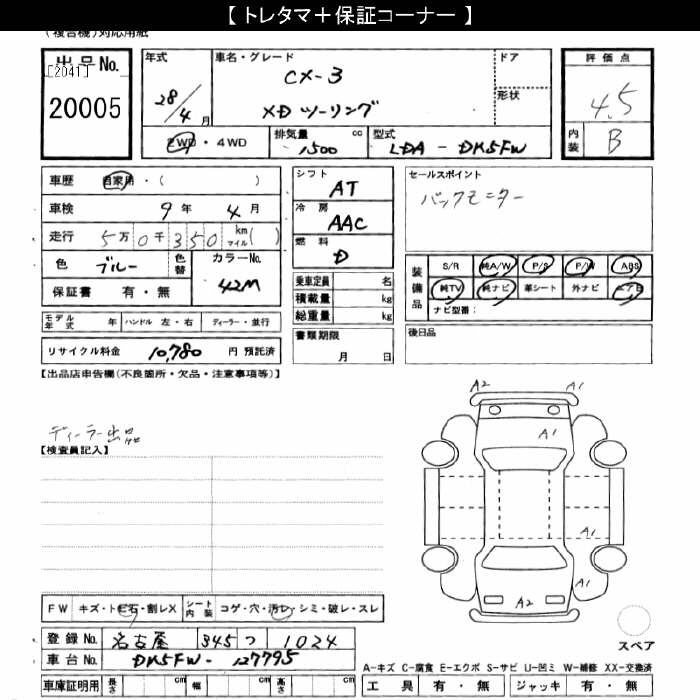 【 トレタマ＋保証コーナー 】
(複合機)対応用紙
出品No. [2041]
20005
年式 28/4月
車名・グレード CX-3
XD ツーリング
ドア
形状
評価点 4.5
内装 B
2WD・4WD
排気量 1500 cc
型式 LDA - DK5FW
車歴 自家用・( )
車検 9年 4月
走行 5万0千350 km マイル( )
色 ブルー 色替 カラーNo. 42M
保証書 有・無
モデル年式 年 ハンドル 左・右 ディーラー・並行
リサイクル料金 10,780 円 預託済
シフト AT
冷房 AAC
燃料 D
乗車定員 名
積載量 kg
総重量 kg
書類期限 月 日
セールスポイント
バックモニター
装備品 S/R 純A/W P/S P/W ABS
純TV 純ナビ 革シート 外ナビ エアB
ナビ型番：
後日品
【出品店申告欄(不良箇所・欠品・注意事項等)】
ディーラー出品
【検査員記入】
A2 A1
A1
A1
A1
A2
スペア
FW キズ・トビ石・割レX シート内装 コゲ・穴・汚レ・シミ・破レ・スレ
登録No. 名古屋 345 つ 1024
車台No. DK5FW-127795
車庫証明用 長さ cm 幅 cm 高さ cm
A-キズ C-腐食 E-エクボ S-サビ U-凹ミ W-補修 XX-交換済
工具 有・無 ジャッキ 有・無